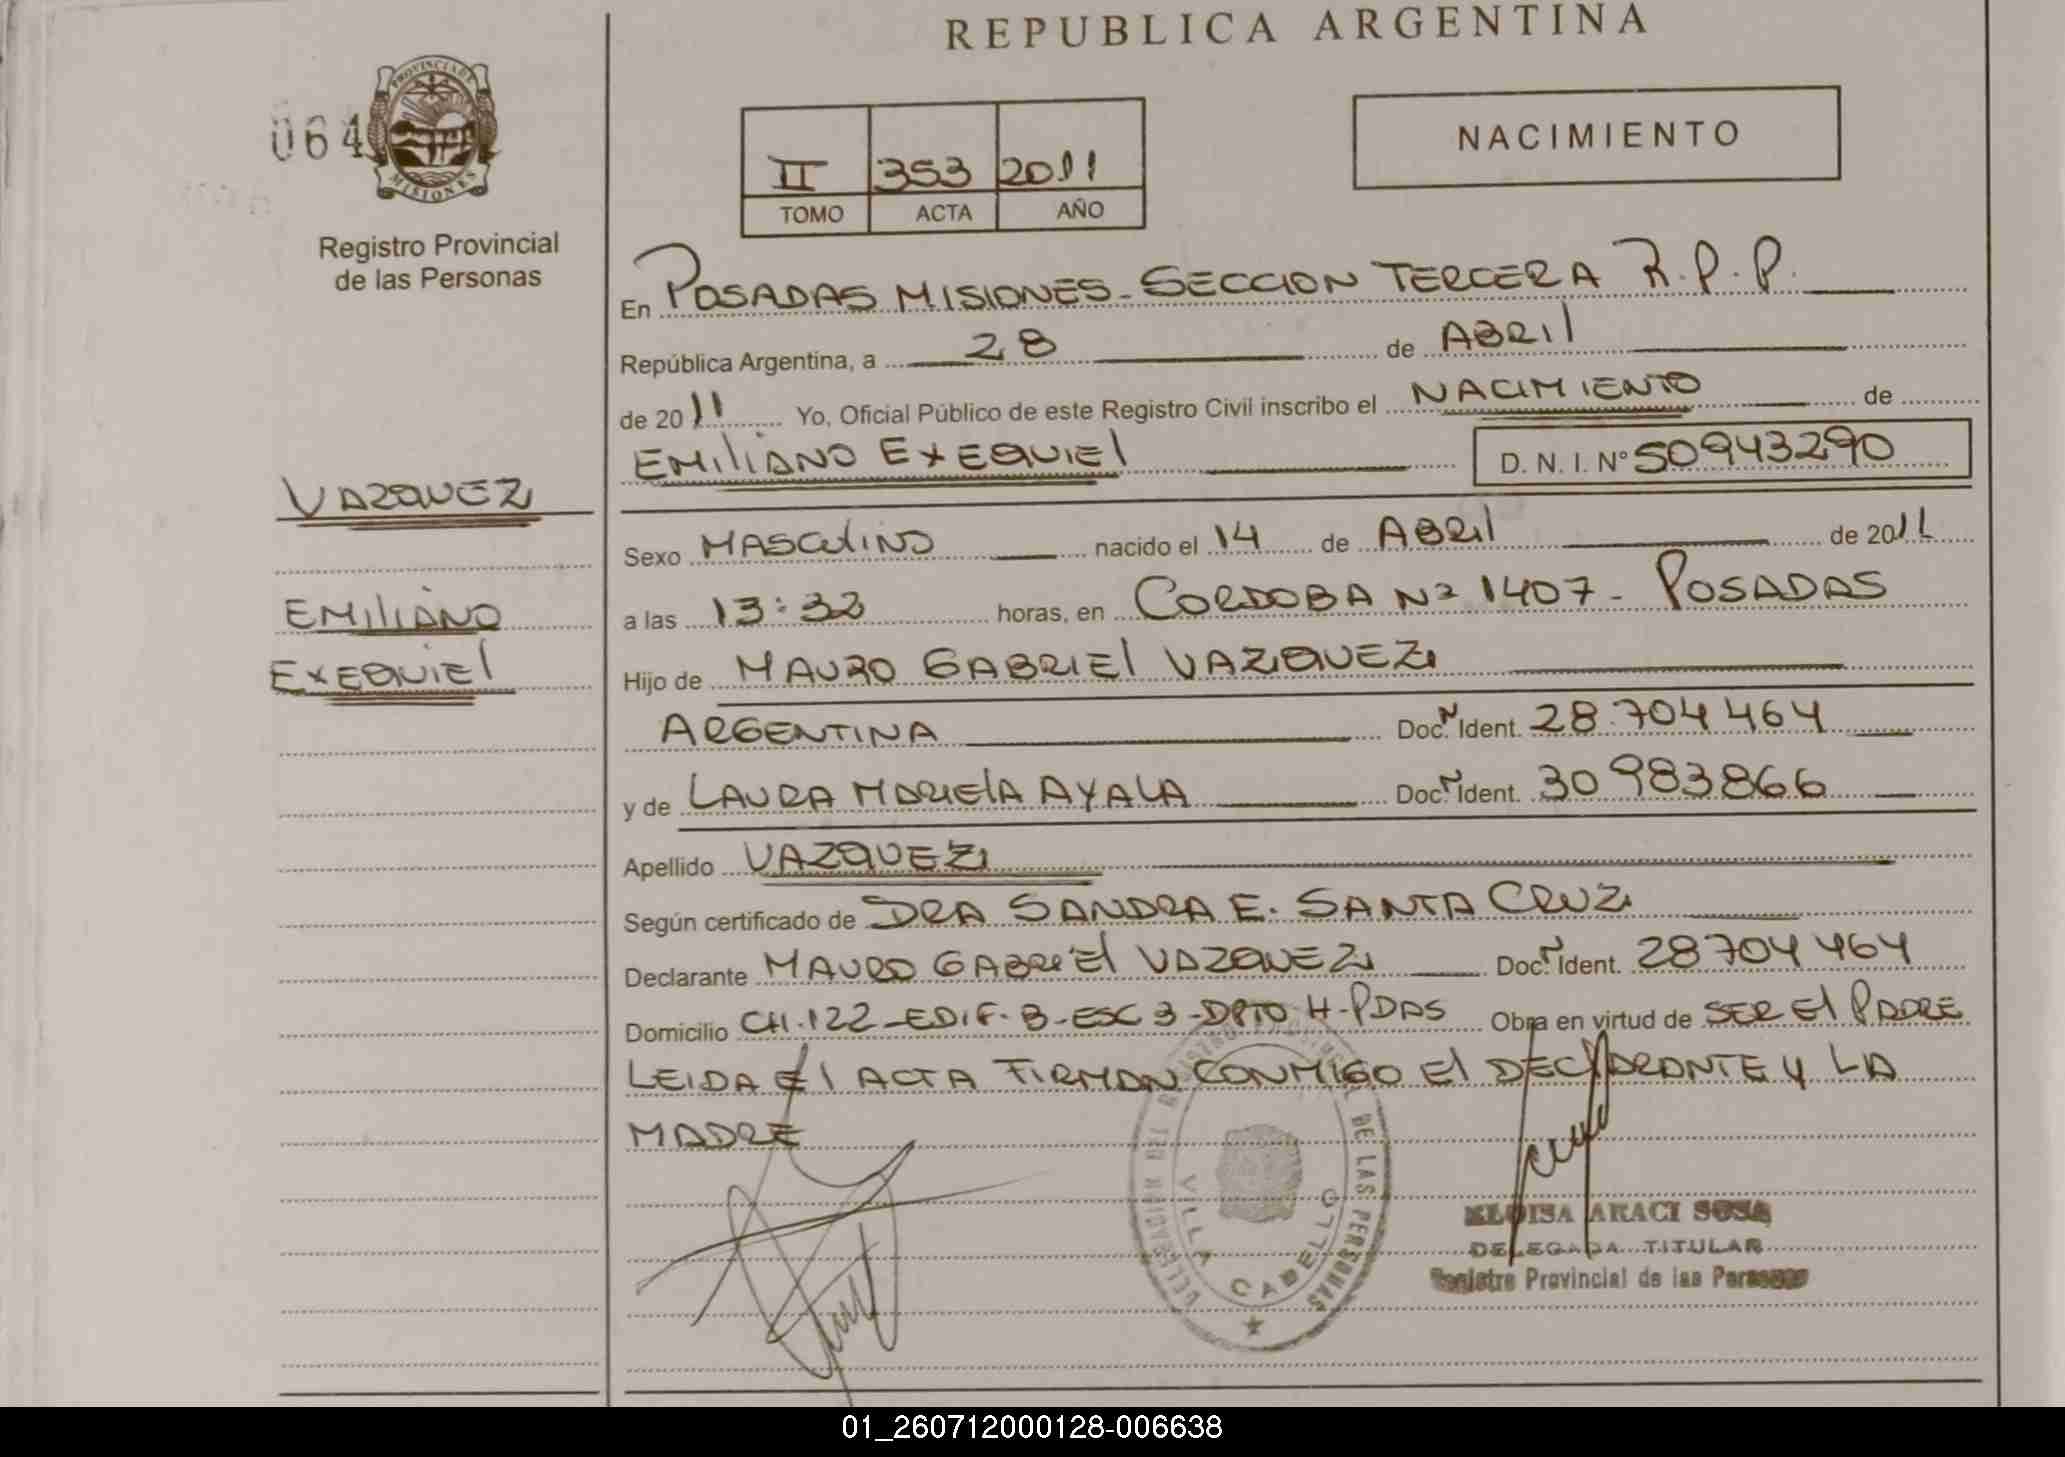 REPUBLICA ARGENTINA
064
PROVINCIA DE
MISIONES
Registro Provincial
de las Personas
NACIMIENTO
II 353 2011
TOMO ACTA AÑO
En POSADAS MISIONES - SECCION TERCERA R.P.P.
República Argentina, a 28 de ABRIL
de 2011 Yo, Oficial Público de este Registro Civil inscribo el NACIMIENTO de
EMILIANO EXEQUIEL D. N. I. N° 50943290
VAZQUEZ
EMILIANO
EXEQUIEL
Sexo MASCULINO nacido el 14 de ABRIL de 2011
a las 13:32 horas, en CORDOBA Nº 1407 - POSADAS
Hijo de MAURO GABRIEL VAZQUEZ
ARGENTINA Doc. N Ident. 28.704464
y de LAURA MARIELA AYALA Doc. N Ident. 30983866
Apellido VAZQUEZ
Según certificado de DRA SANDRA E. SANTA CRUZ
Declarante MAURO GABRIEL VAZQUEZ Doc. N Ident. 28704464
Domicilio CH.122-EDIF-B-ESC 3-DPTO H-PDAS Obra en virtud de SER El PADRE
LEIDA El ACTA FIRMAN CONMIGO El DECLARANTE Y LA
MADRE
REGISTRO PROVINCIAL DE LAS PERSONAS
VILLA CABELLO
ELOISA ARACI SOSA
DELEGADA TITULAR
Registro Provincial de las Personas
01_260712000128-006638